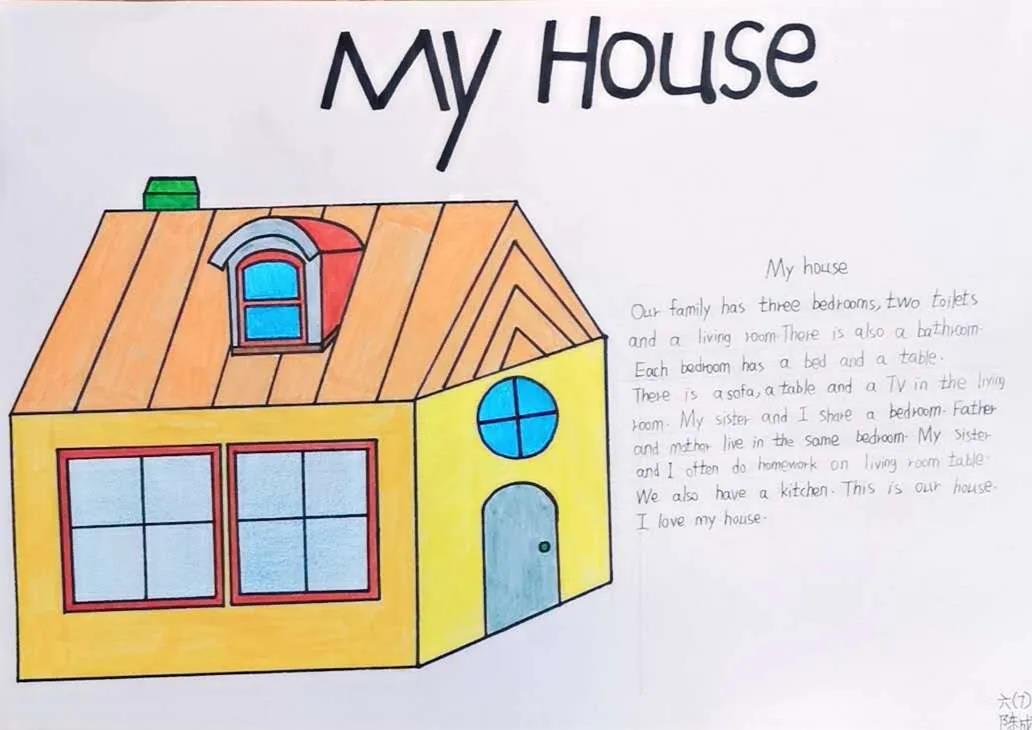 My House
My house
Our family has three bedrooms, two toilets
and a living room. There is also a bathroom.
Each bedroom has a bed and a table.
There is a sofa, a table and a TV in the living
room. My sister and I share a bedroom. Father
and mother live in the same bedroom. My sister
and I often do homework on living room table.
We also have a kitchen. This is our house.
I love my house.
六(7)
陈成